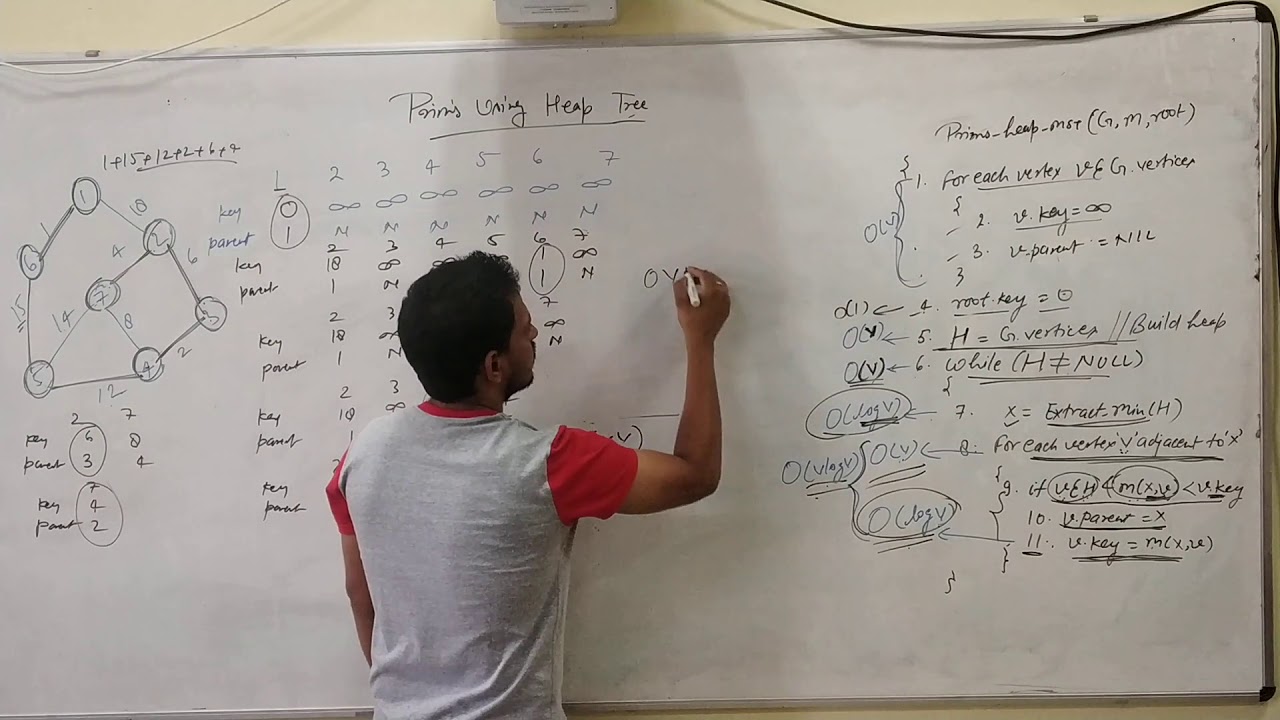 Prim's Using Heap Tree
1+15+12+2+6+4
1 2 3 4 5 6 7
key 0 ∞ ∞ ∞ ∞ ∞ ∞
parent 1 N N N N N N
2 3 4 5 6 7
key 18 ∞ ∞ 1 ∞
parent 1 N 1 N
2 3 7
key 18 ∞ ∞
parent 1 N N
2 3
key 18 ∞
parent 1
key
parent
1
18
6
4
6
7
15
14
8
3
2
5
4
12
2 7
key 6 8
parent 3 4
7
key 4
parent 2
O V
V)
Prims-heap-mst (G, m, root)
{
1. for each vertex v∈G.vertices
{
O(V)
2. v.key=∞
3. v.parent = NIL
}
O(1) ← 4. root.key = 0
O(V) ← 5. H = G.vertices // Build heap
O(V) ← 6. while (H ≠ NULL)
{
O(logV) ← 7. x = Extract-min(H)
O(VlogV) { O(V) ← 8. for each vertex 'v' adjacent to 'x'
{
9. if v∈H & m(x,v) < v.key
10. v.parent = x
O(logV) ← 11. v.key = m(x,v)
}
}